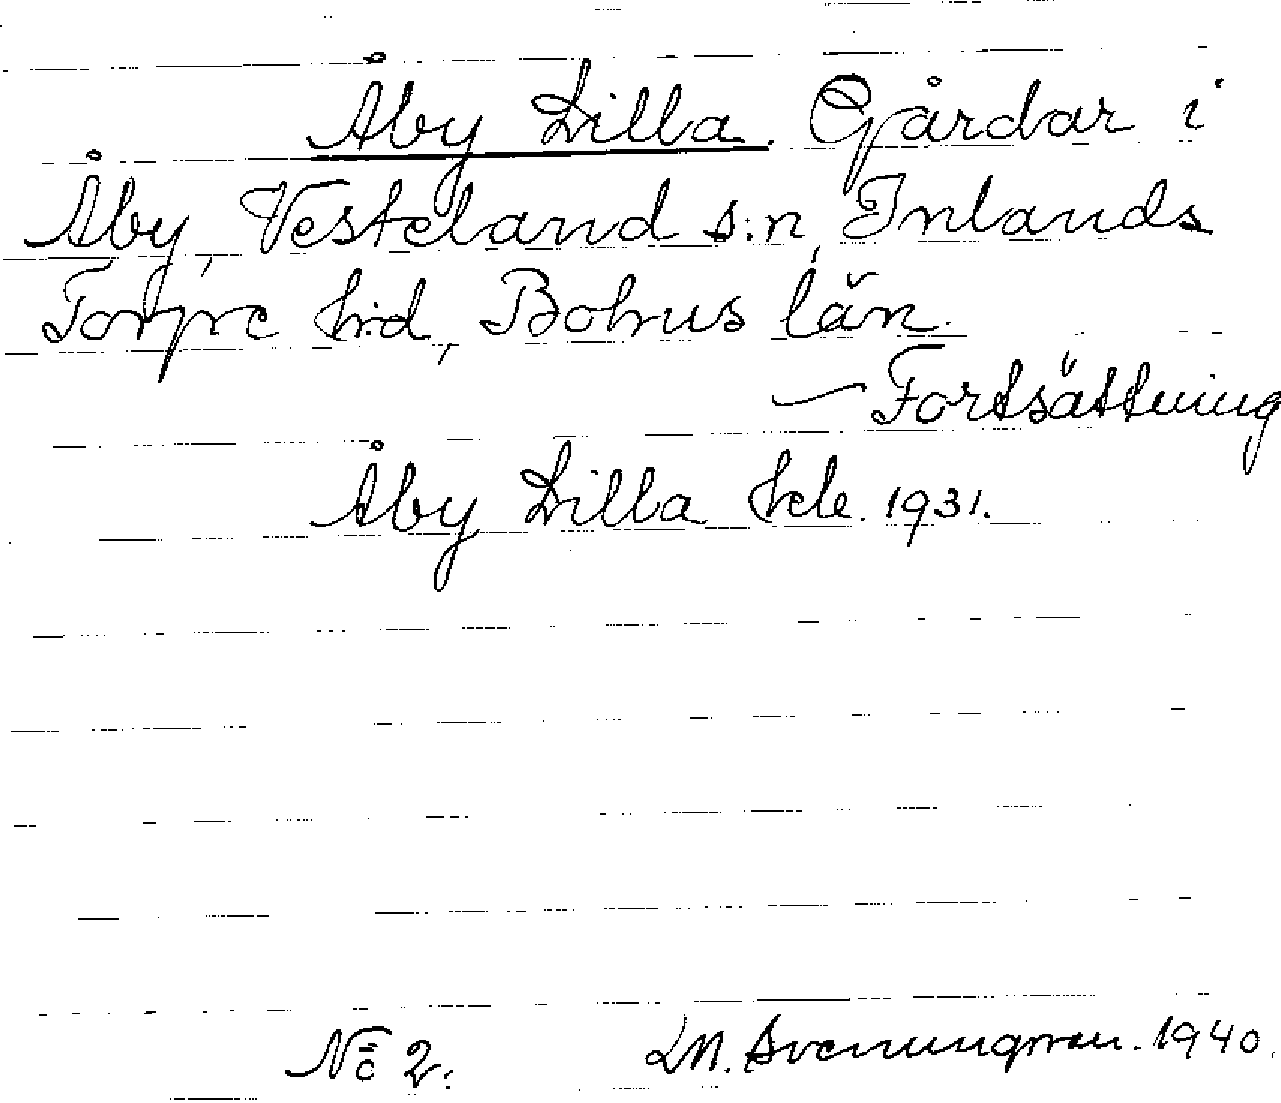 Åby Lilla. Gårdar i
Åby, Vesteland s:n, Inlands
Torpe h:d, Bohus län.
— Fortsättning
Åby Lilla hele. 1931.
No 2. LM. Svenungsson. 1940.